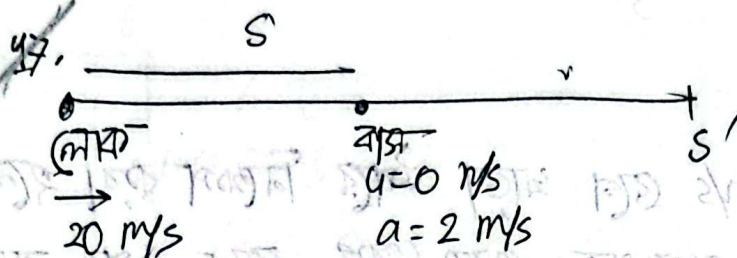 47. S
লোক বাস S'
20 m/s u=0 m/s
a = 2 m/s